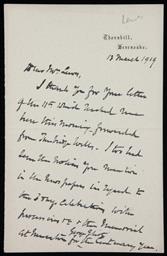 Lewis
Thornhill,
Sevenoaks.
13 March 1919
Dear Mr Lewis,
I thank you for your letter
of the 11th which reached me
here this morning, forwarded
from Tunbridge Wells. I too had
seen the notice you mention
in the newspapers in regard to
the day celebration with
procession & at the Memorial
Gogerddan
at for the Centenary year.